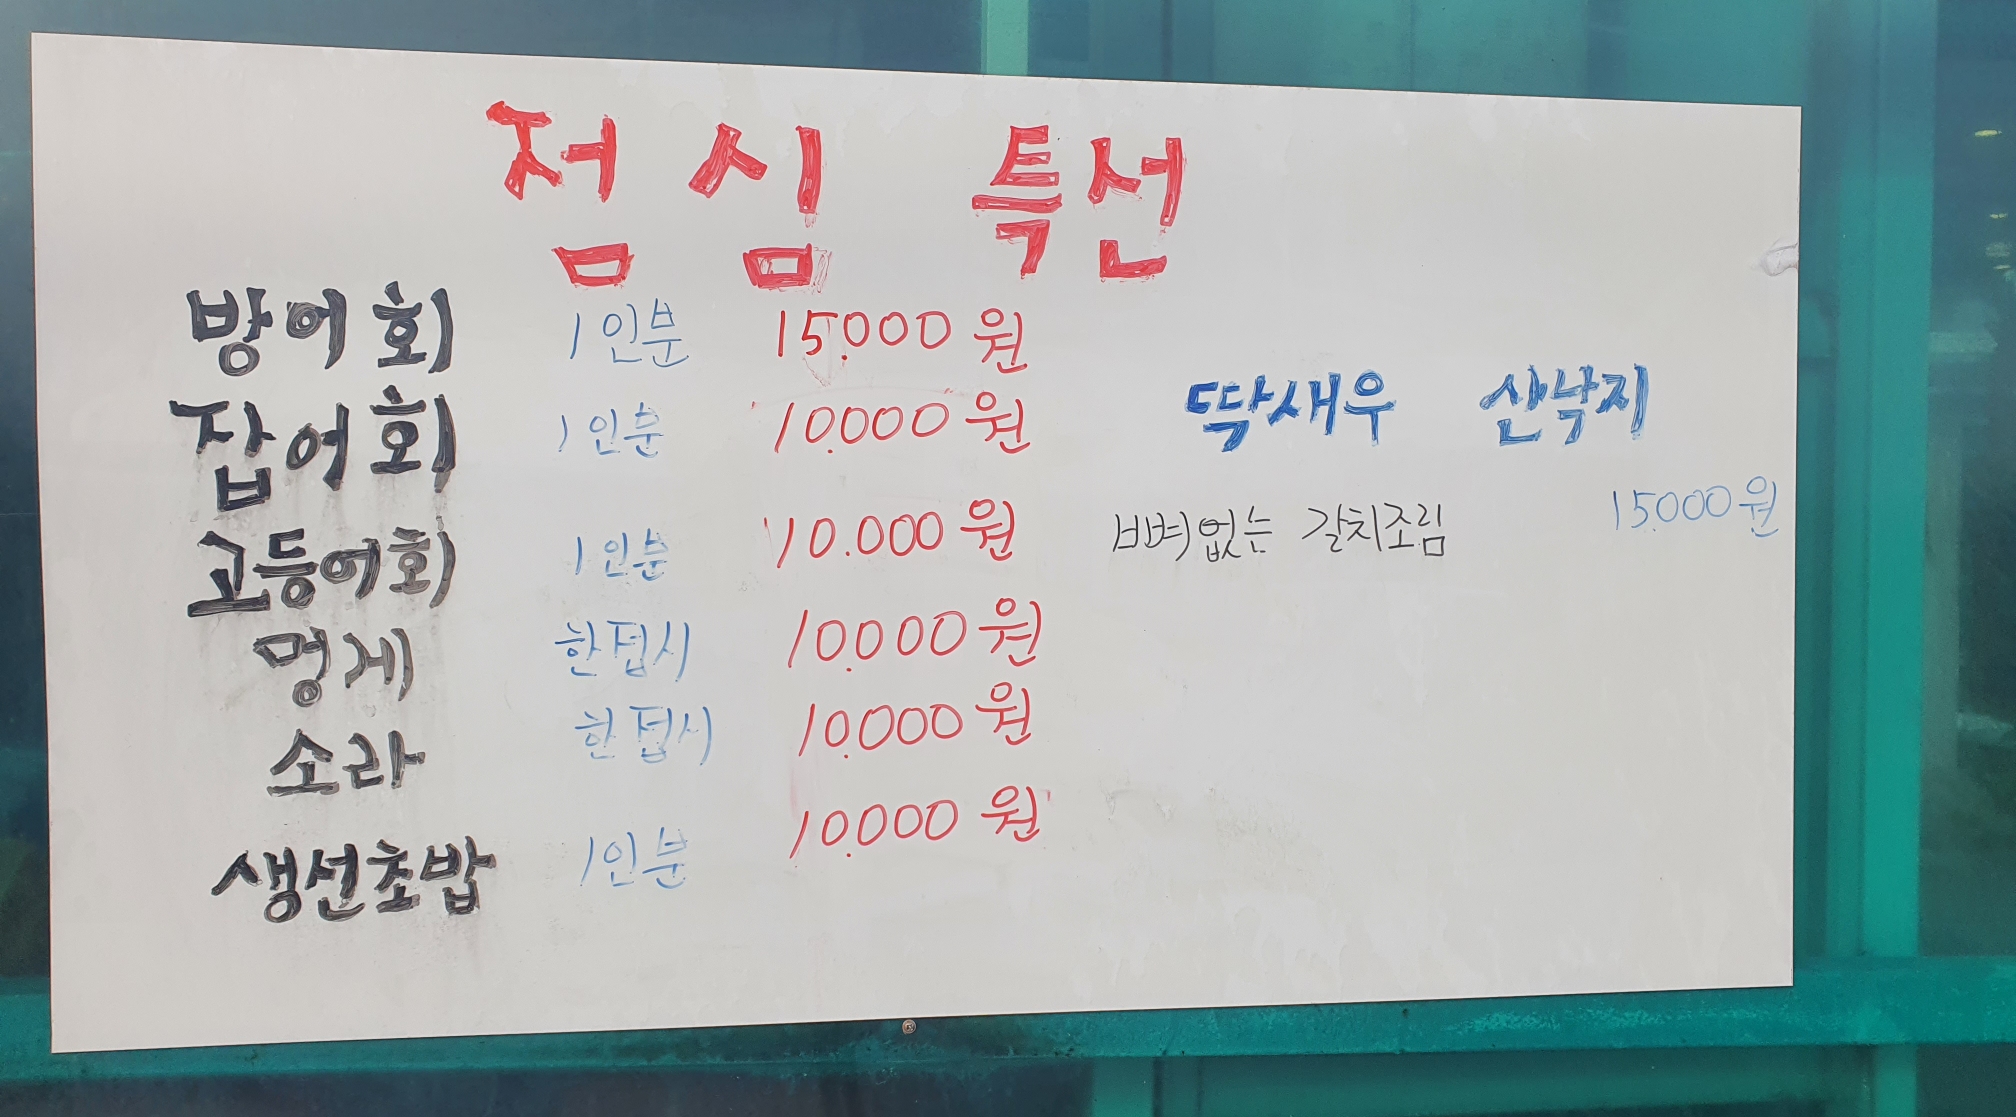 점심 특선
방어회 1인분 15.000원
잡어회 1인분 10.000원
고등어회 1인분 10.000원
멍게 한접시 10.000원
소라 한접시 10.000원
생선초밥 1인분 10.000원
딱새우 산낙지
뼈없는 갈치조림 15.000원